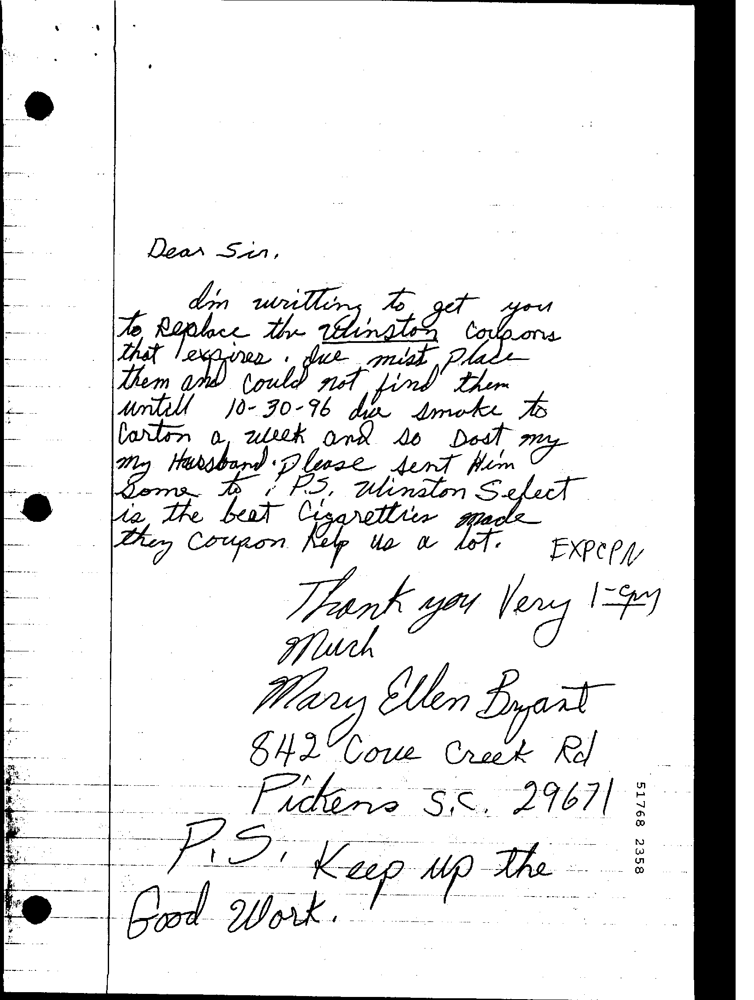 Dear Sir,
I'm writting to get you
to Replace the Winston Coupons
that expires. I've mist place
them and could not find them
untill 10-30-96 I've smoke to
Carton a week and so Dost my
my Hassband. Please sent Him
Some to! P.S. Winston Select
is the beat Cigarettries made
they Coupon help us a lot.
EXPCPN
Thank you Very 1-cpy
Much
Mary Ellen Bryant
842 Cove Creek Rd
Pickens S.C. 29671
P.S. Keep up the
Good Work.
51768 2358